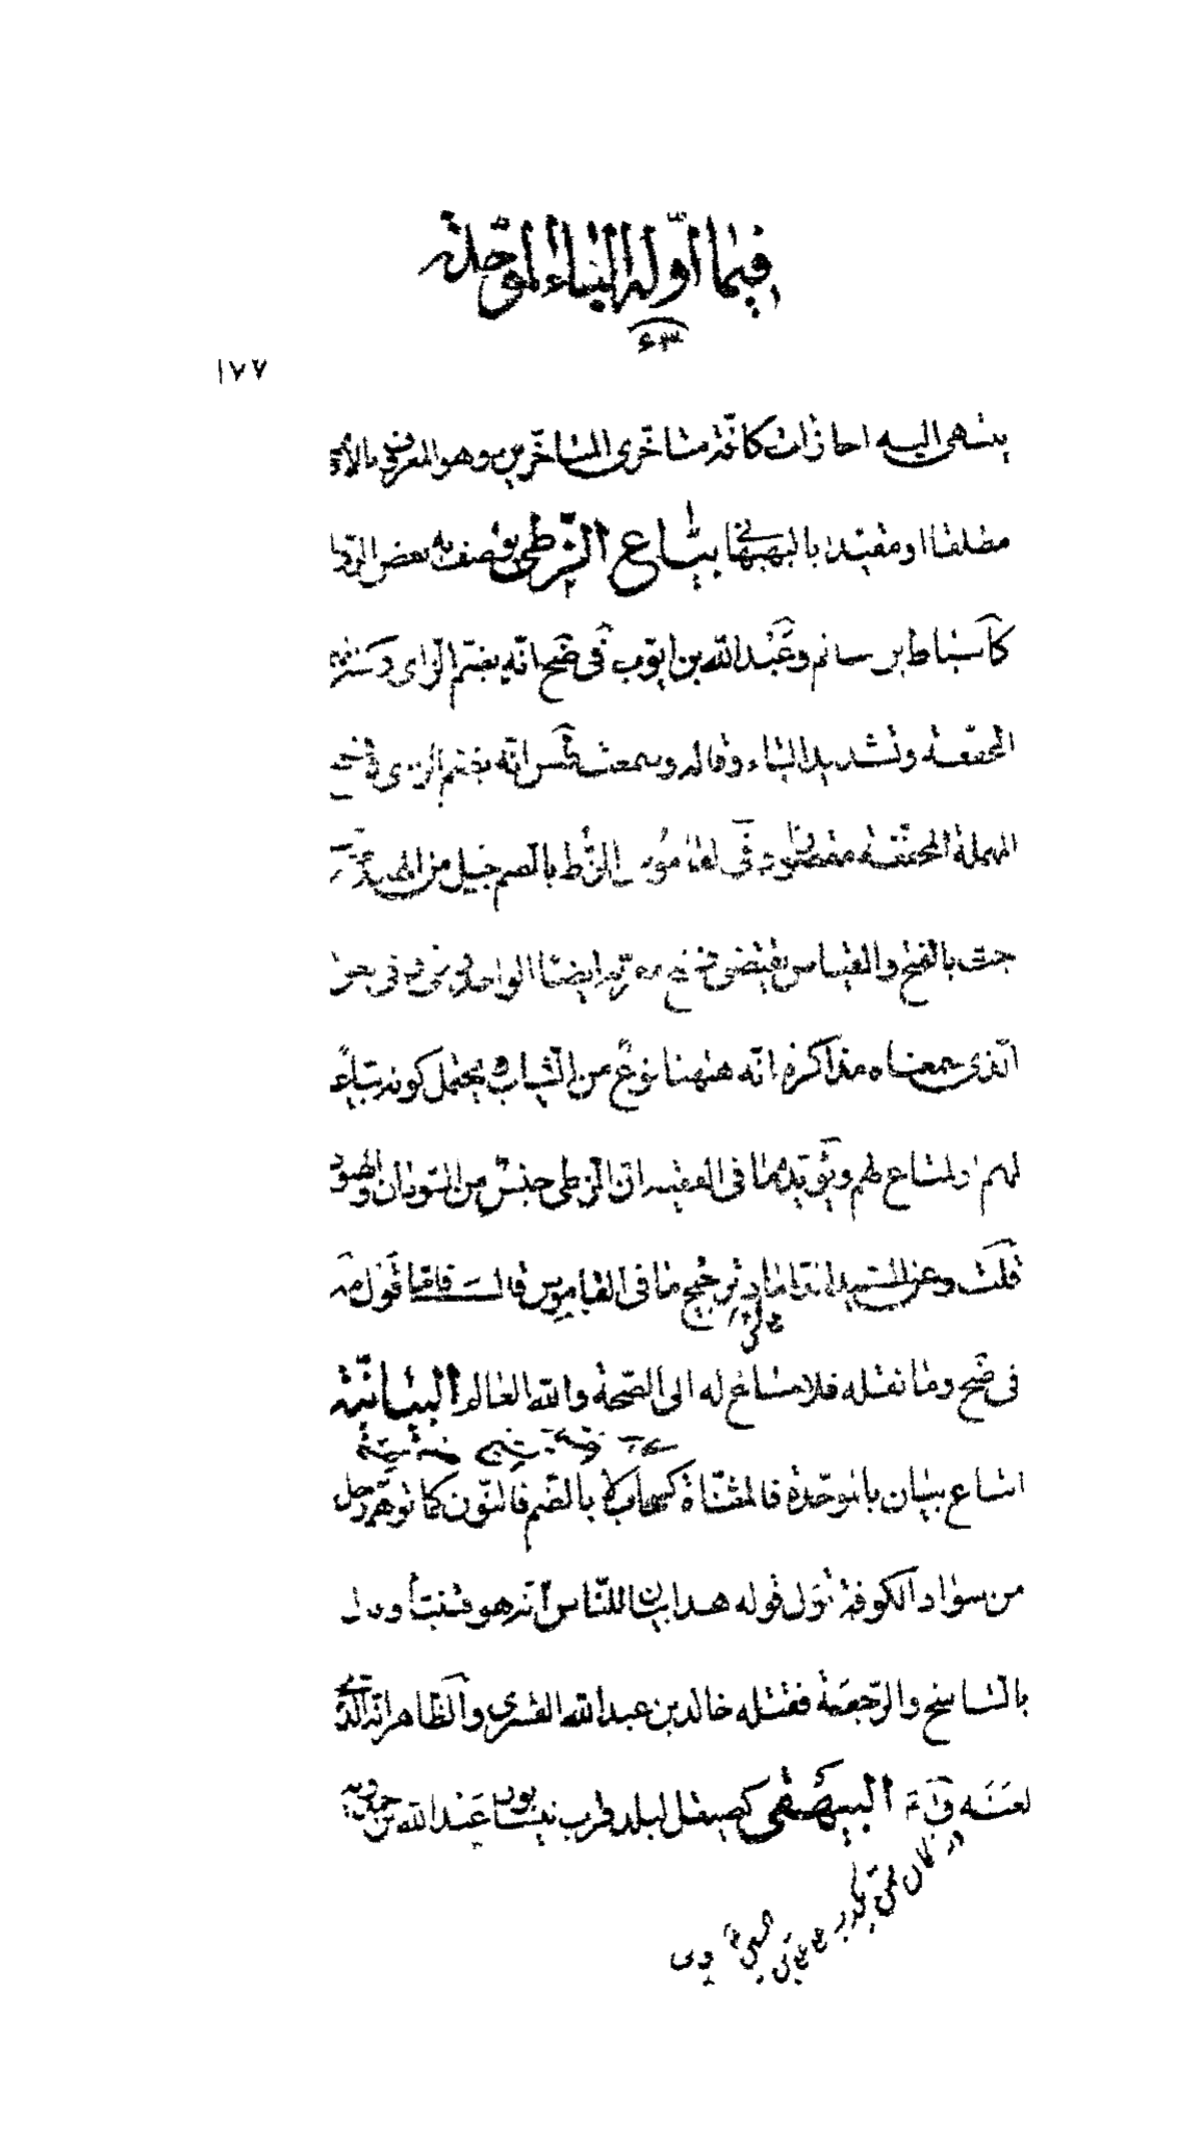 فيما اوّله الباء الموحدة
۶۳
۱۷۷
ينتهى اليه اجازات كافة متاخّرى المتاخّرين وهو المعروف بالأغا
مطلقا او مقيدا بالبهبهانى بيّاع الزّطى يوصف به بعض الرّواة
كاسباط بن سالم وعبدالله بن ايوب فى ضح انّه بضمّ الزاى وكسر
المخفّفة وتشديد الياء وقال وسمعت من السيد انّه بضم الزاى وفتح
المهملة المخففة مقصورا وفى القاموس الزّط بالضم جيل من الهند معرّب
جت بالفتح والقياس يقتضى فتح معرّبه ايضا الواحد زطى وفى بعض
الّذى سمعناه مذاكرة انّه ههنا نوع من الثياب ويحتمل كونه بيّاعا
لهم او لمتاع لهم ويؤيّد ما فى الفقيه انّ الزطى جنس من السودان والهنود
قلت وعن السّيد الدّاماد ترجيح ما فى القاموس قال فامّا قول مه
فى ضح وما نقله فلا مساغ له الى الصّحة والله العالم البيانيّة
اتباع بيان بالموحّدة فالمثنّاة كسحاب لا بالضّم فالنّون كما توهّم رجل
من سواد الكوفة تأوّل قوله هذا بيان للنّاس انّه هو فتنبّأ وقال
بالتّناسخ والرّجعة فقتله خالد بن عبدالله القسرى والظّاهر انّه الّذى
لعنه ق البيهقى كصيقل لبلد قرب نيسابور عبدالله بن حمدويه